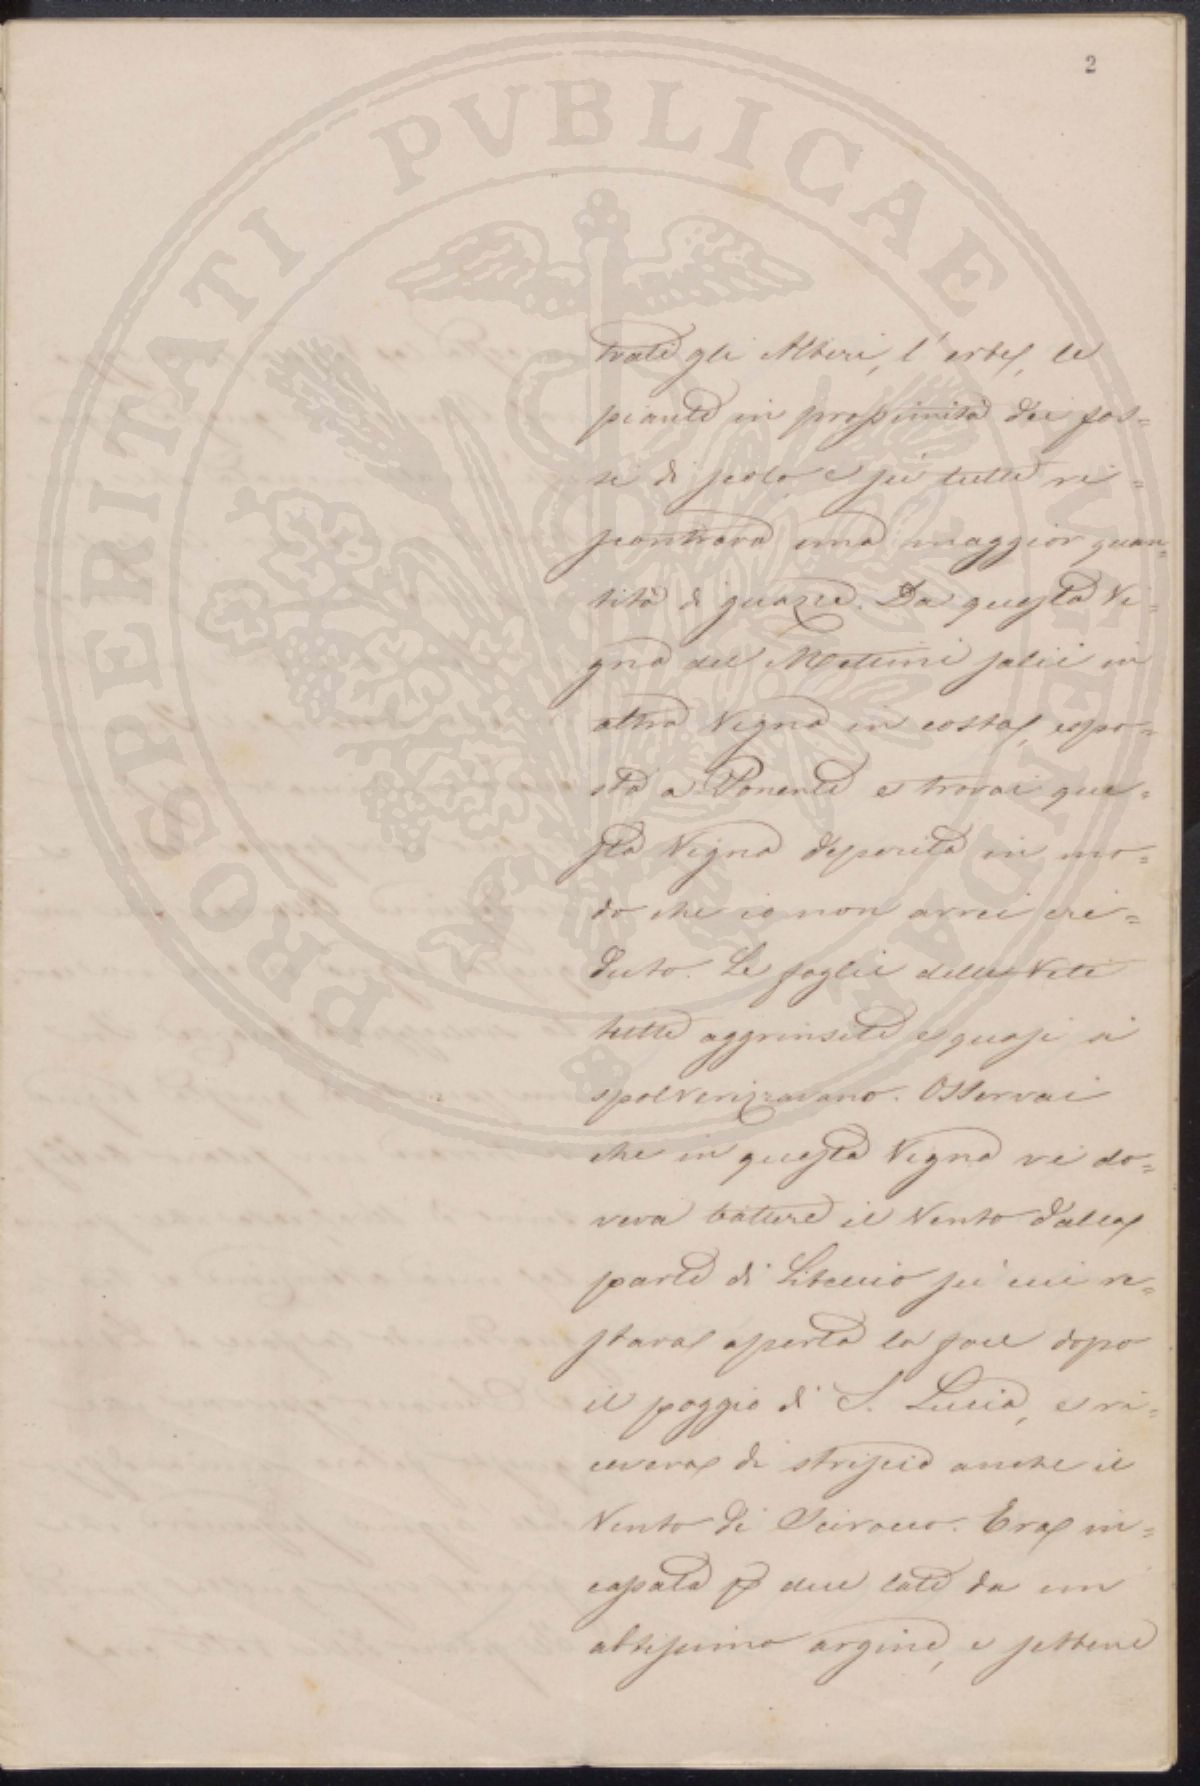 2
PROSPERITATI PVBLICAE AVGENDAE
trate gli Alberi, l'erbe, le
piante in prossimità dei fos=
si di scolo, e su tutte ri=
scontrava una maggior quan=
tità di guazza. Da questa Vi=
gna del Metimi salii in
altra Vigna in costa, espo=
sta a Ponente e trovai que=
sta Vigna deperita in mo=
do che io non avrei cre=
duto. Le foglie delle Viti
tutte aggrinsite e quasi si
spolverizzavano. Osservai
che in questa Vigna vi do=
veva battere il Vento dalla
parte di Libeccio su cui re=
stava aperta la foce dopo
il poggio di S. Lucia, e ri=
ceveva di striscio anche il
Vento di Scirocco. Era in=
casata p due lati da un
altissimo argine, e sebbene